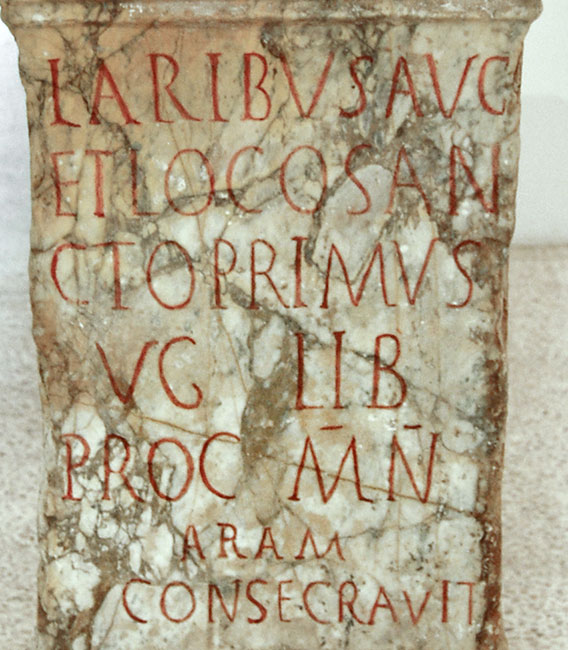 LARIBVSAVG
ETLOCOSAN
CTOPRIMVS
VG LIB
PROC M̅N̅
ARAM
CONSECRAVIT